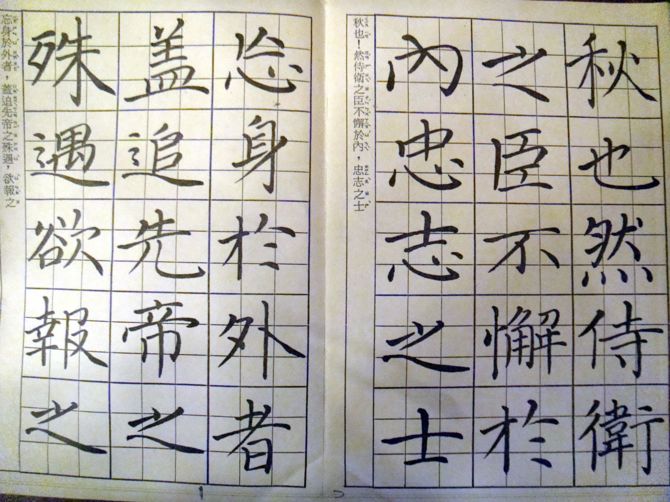 秋也然侍衛
之臣不懈於
內忠志之士
秋也！然侍衛之臣不懈於內，忠志之士
忘身於外者
蓋追先帝之
殊遇欲報之
忘身於外者，蓋追先帝之殊遇，欲報之